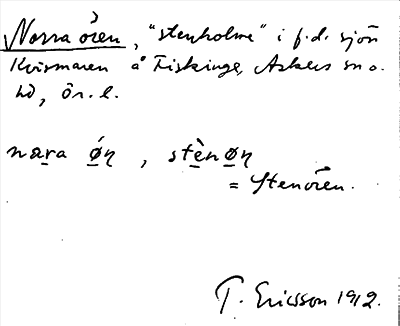 Norra ören, "stenholme" i f.d. sjön
Kvismaren å Fiskinge, Askers sn o.
hd, Ör. l.
næra ǿŋ, stènøŋ
= Stenören.
T. Ericsson 1912.